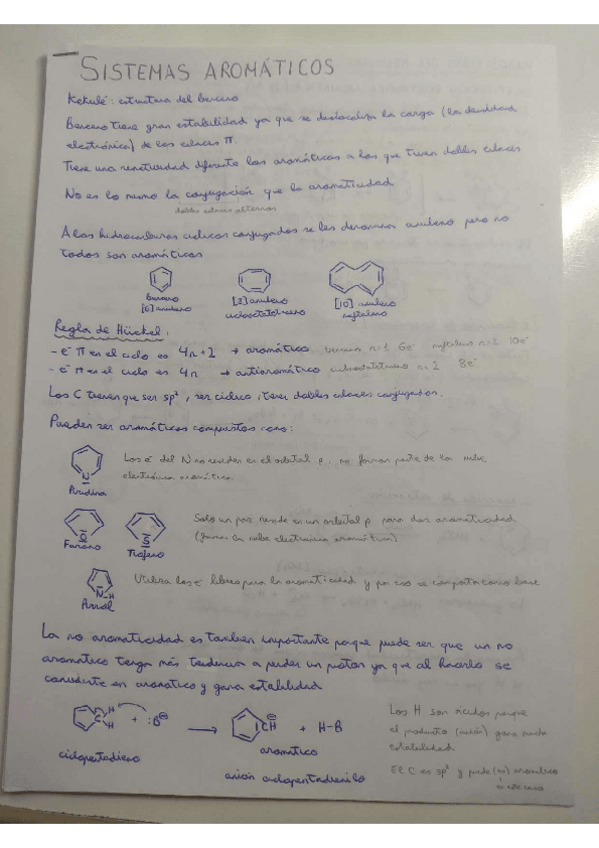 SISTEMAS AROMÁTICOS
Kekulé: estructura del benceno
Benceno tiene gran estabilidad ya que se deslocaliza la carga (la densidad
electrónica) de los enlaces π.
Tiene una reactividad diferente los aromáticos a los que tienen dobles enlaces
No es lo mismo la conjugación que la aromaticidad
dobles enlaces alternos
A los hidrocarburos cíclicos conjugados se les denomina anuleno pero no
todos son aromáticos
benceno
[6] anuleno
[8] anuleno
ciclooctatetraeno
[10] anuleno
naftaleno
Regla de Hückel:
- e⁻ π en el ciclo es 4n+2 → aromático benceno n=1 6e⁻ naftaleno n=2 10e⁻
- e⁻ π en el ciclo es 4n → antiaromático ciclooctatetraeno n=2 8e⁻
Los C tienen que ser sp², ser cíclico, tener dobles enlaces conjugados.
Pueden ser aromáticos compuestos como:
N
Piridina
Los e⁻ del N no residen en el orbital p, no forman parte de la nube
electrónica aromática.
O
Furano
S
Tiofeno
Solo un par reside en un orbital p para dar aromaticidad
(ganar la nube electrónica aromática)
N-H
Pirrol
Utiliza los e⁻ libres para la aromaticidad y por eso se comporta como base
La no aromaticidad es también importante porque puede ser que un no
aromático tenga más tendencia a perder un protón ya que al hacerlo se
convierte en aromático y gana estabilidad
H
C H + :B⊖ → CH⊖ + H-B
ciclopentadieno
aromático
anión ciclopentadienilo
Los H son ácidos porque
el producto (anión) gana mucha
estabilidad.
El C es sp² y puede ser aromático